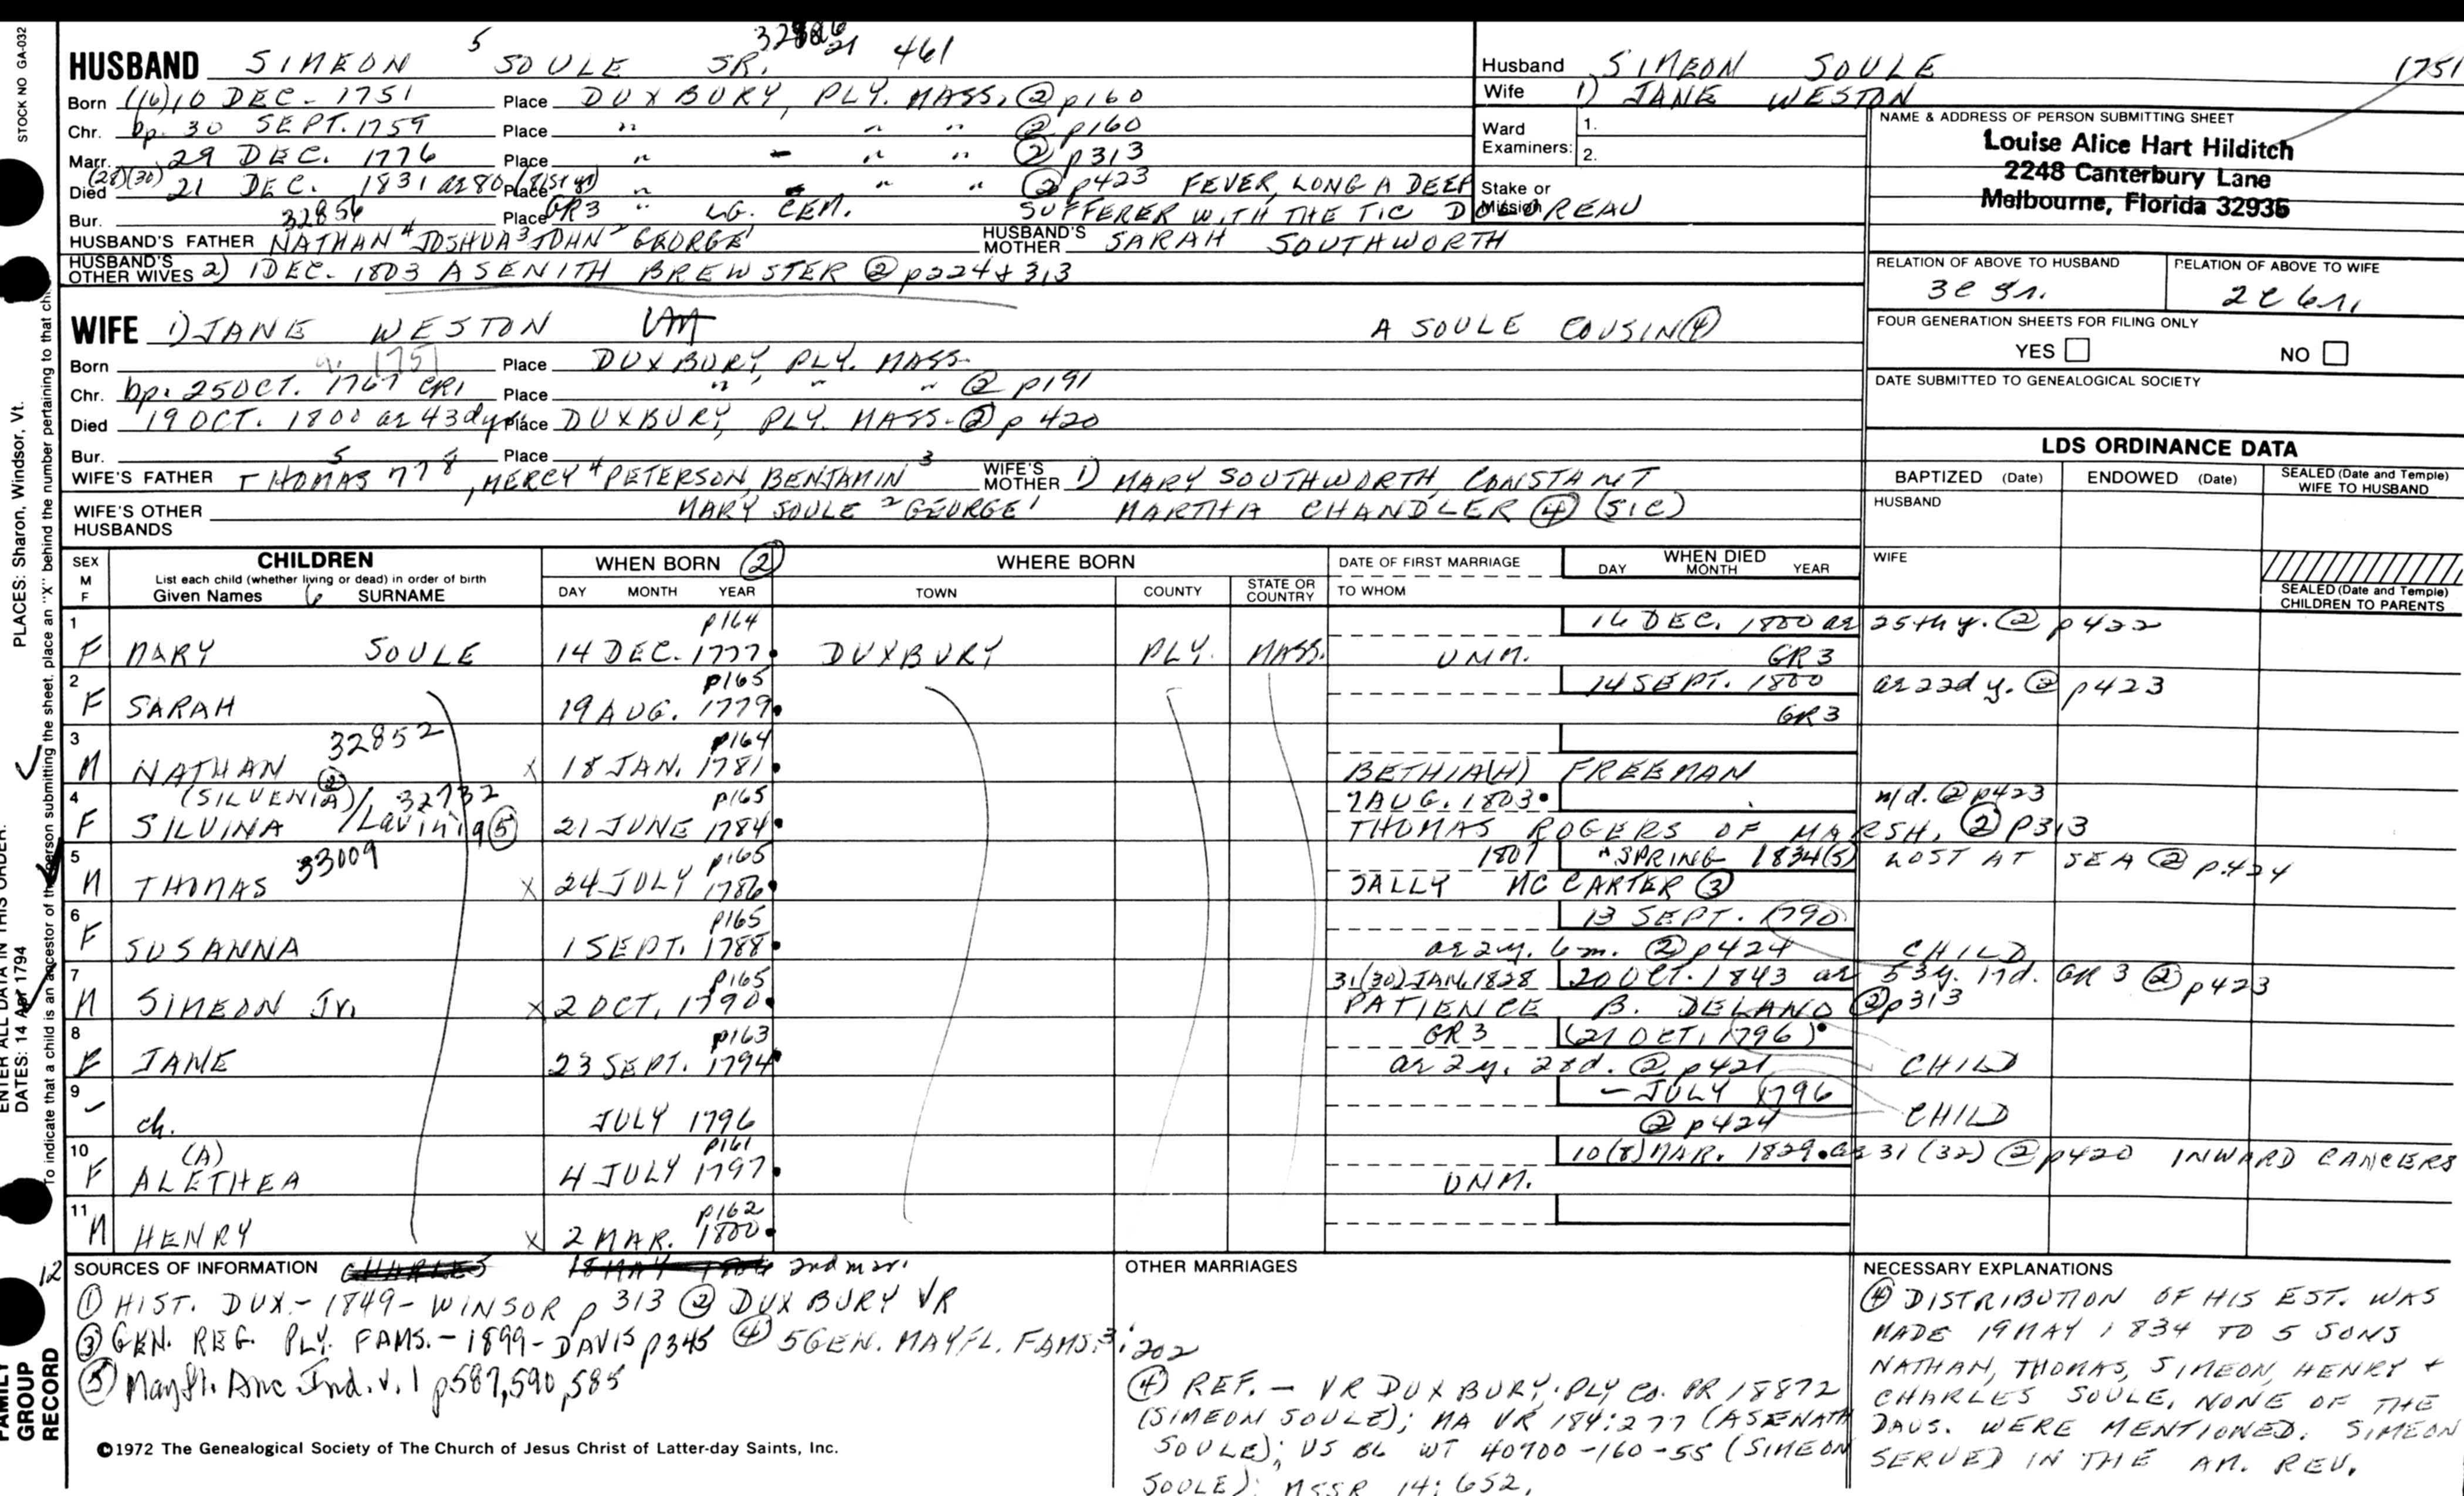 STOCK NO GA-032
PLACES: Sharon, Windsor, Vt.
ENTER ALL DATA IN THIS ORDER:
DATES: 14 Apr 1794
To indicate that a child is an ancestor of the person submitting the sheet, place an "X" behind the number pertaining to that
FAMILY
GROUP
RECORD
461
HUSBAND SIMEON 5 SOULE SR.
Born (16) 10 DEC. 1751 Place DUXBURY, PLY. MASS. ② p160
Chr. bp. 30 SEPT. 1759 Place " " " ② p160
Marr. 29 DEC. 1776 Place " " " ② p313
(28)(30)
Died 21 DEC. 1831 ae 80 Place " " " ② p423 FEVER, LONG A DEEP
Bur. 32856 Place GR3 " LG. CEM. SUFFERER WITH THE TIC
HUSBAND'S FATHER NATHAN 4 JOSHUA 3 JOHN 2 GEORGE 1 HUSBAND'S MOTHER SARAH SOUTHWORTH
HUSBAND'S OTHER WIVES 2) 1 DEC. 1803 ASENITH BREWSTER ② p224 + 313
WIFE 1) JANE WESTON A SOULE COUSIN ④
Born Place DUXBURY, PLY. MASS.
Chr. bp. 25 OCT. 1767 CR1 Place " " " ② p191
Died 19 OCT. 1800 ae 43d y. Place DUXBURY, PLY. MASS. ② p 420
Bur. Place
WIFE'S FATHER THOMAS 5, MERCY 4 PETERSON, BENJAMIN 3 WIFE'S MOTHER 1) MARY SOUTHWORTH, CONSTANT
WIFE'S OTHER HUSBANDS MARY SOULE 2 GEORGE 1 MARTHA CHANDLER ④ (SIC)
Husband SIMEON SOULE 1751
Wife 1) JANE WESTON
Ward Examiners: 1.
2.
Stake or Mission
NAME & ADDRESS OF PERSON SUBMITTING SHEET
Louise Alice Hart Hilditch
2248 Canterbury Lane
Melbourne, Florida 32935
RELATION OF ABOVE TO HUSBAND RELATION OF ABOVE TO WIFE
FOUR GENERATION SHEETS FOR FILING ONLY
YES NO
DATE SUBMITTED TO GENEALOGICAL SOCIETY
LDS ORDINANCE DATA
BAPTIZED (Date) ENDOWED (Date) SEALED (Date and Temple) WIFE TO HUSBAND
HUSBAND
WIFE
SEALED (Date and Temple) CHILDREN TO PARENTS
SEX M F CHILDREN WHEN BORN ② WHERE BORN DATE OF FIRST MARRIAGE WHEN DIED
List each child (whether living or dead) in order of birth DAY MONTH YEAR
Given Names 6 SURNAME DAY MONTH YEAR TOWN COUNTY STATE OR COUNTRY TO WHOM
1 p164 16 DEC. 1800 ae 25th y. ② p422
F MARY SOULE 14 DEC. 1777 DUXBURY PLY. MASS. UNM. GR3
2 p165 14 SEPT. 1800 ae 22d y. ② p423
F SARAH 19 AUG. 1779 GR3
3 32852 p164
M NATHAN X 18 JAN. 1781 BETHIA(H) FREEMAN
4 (SILVENIA) ② 32732 p165 7 AUG. 1803 n/d. ② p423
F SILVINA /Lavinia ⑤ 21 JUNE 1784 THOMAS ROGERS OF MARSH. ② P313
5 33009 p165 1807 SPRING 1834(5) LOST AT SEA ② p.424
M THOMAS X 24 JULY 1786 SALLY MC CARTER ③
6 p165 13 SEPT. 1790
F SUSANNA 1 SEPT. 1788 ae 2y. 6m. ② p424 CHILD
7 p165 31(30) JAN. 1828 20 OCT. 1843 ae 53y. 17d. GR 3 ② p423
M SIMEON Jr. X 2 OCT. 1790 PATIENCE B. DELANO ② p313
8 p163 GR3 (21 OCT. 1796)
F JANE 23 SEPT. 1794 ae 2y. 28d. ② p421 CHILD
9 - JULY 1796
ch. JULY 1796 ② p424 CHILD
10 (A) p161 10(8) MAR. 1829 ae 31 (32) ② p420 INWARD CANCERS
F ALETHEA 4 JULY 1797 UNM.
11 p162
M HENRY X 2 MAR. 1800
12 SOURCES OF INFORMATION CHARLES 2nd mar.
① HIST. DUX - 1849 - WINSOR p 313 ② DUXBURY VR
③ GEN. REG. PLY. FAMS. - 1899 - DAVIS p345 ④ 5 GEN. MAYFL. FAMS. 3:202
⑤ Mayfl. Anc Ind. v. 1 p587, 590, 585
©1972 The Genealogical Society of The Church of Jesus Christ of Latter-day Saints, Inc.
OTHER MARRIAGES
④ REF. - VR DUXBURY; PLY CO. PR 18872
(SIMEON SOULE); MA VR 184:277 (ASENATH
SOULE); US BL WT 40700-160-55 (SIMEON
SOULE); MSSR 14:652.
NECESSARY EXPLANATIONS
④ DISTRIBUTION OF HIS EST. WAS
MADE 19 MAY 1834 TO 5 SONS
NATHAN, THOMAS, SIMEON, HENRY +
CHARLES SOULE, NONE OF THE
DAUS. WERE MENTIONED. SIMEON
SERVED IN THE AM. REV.